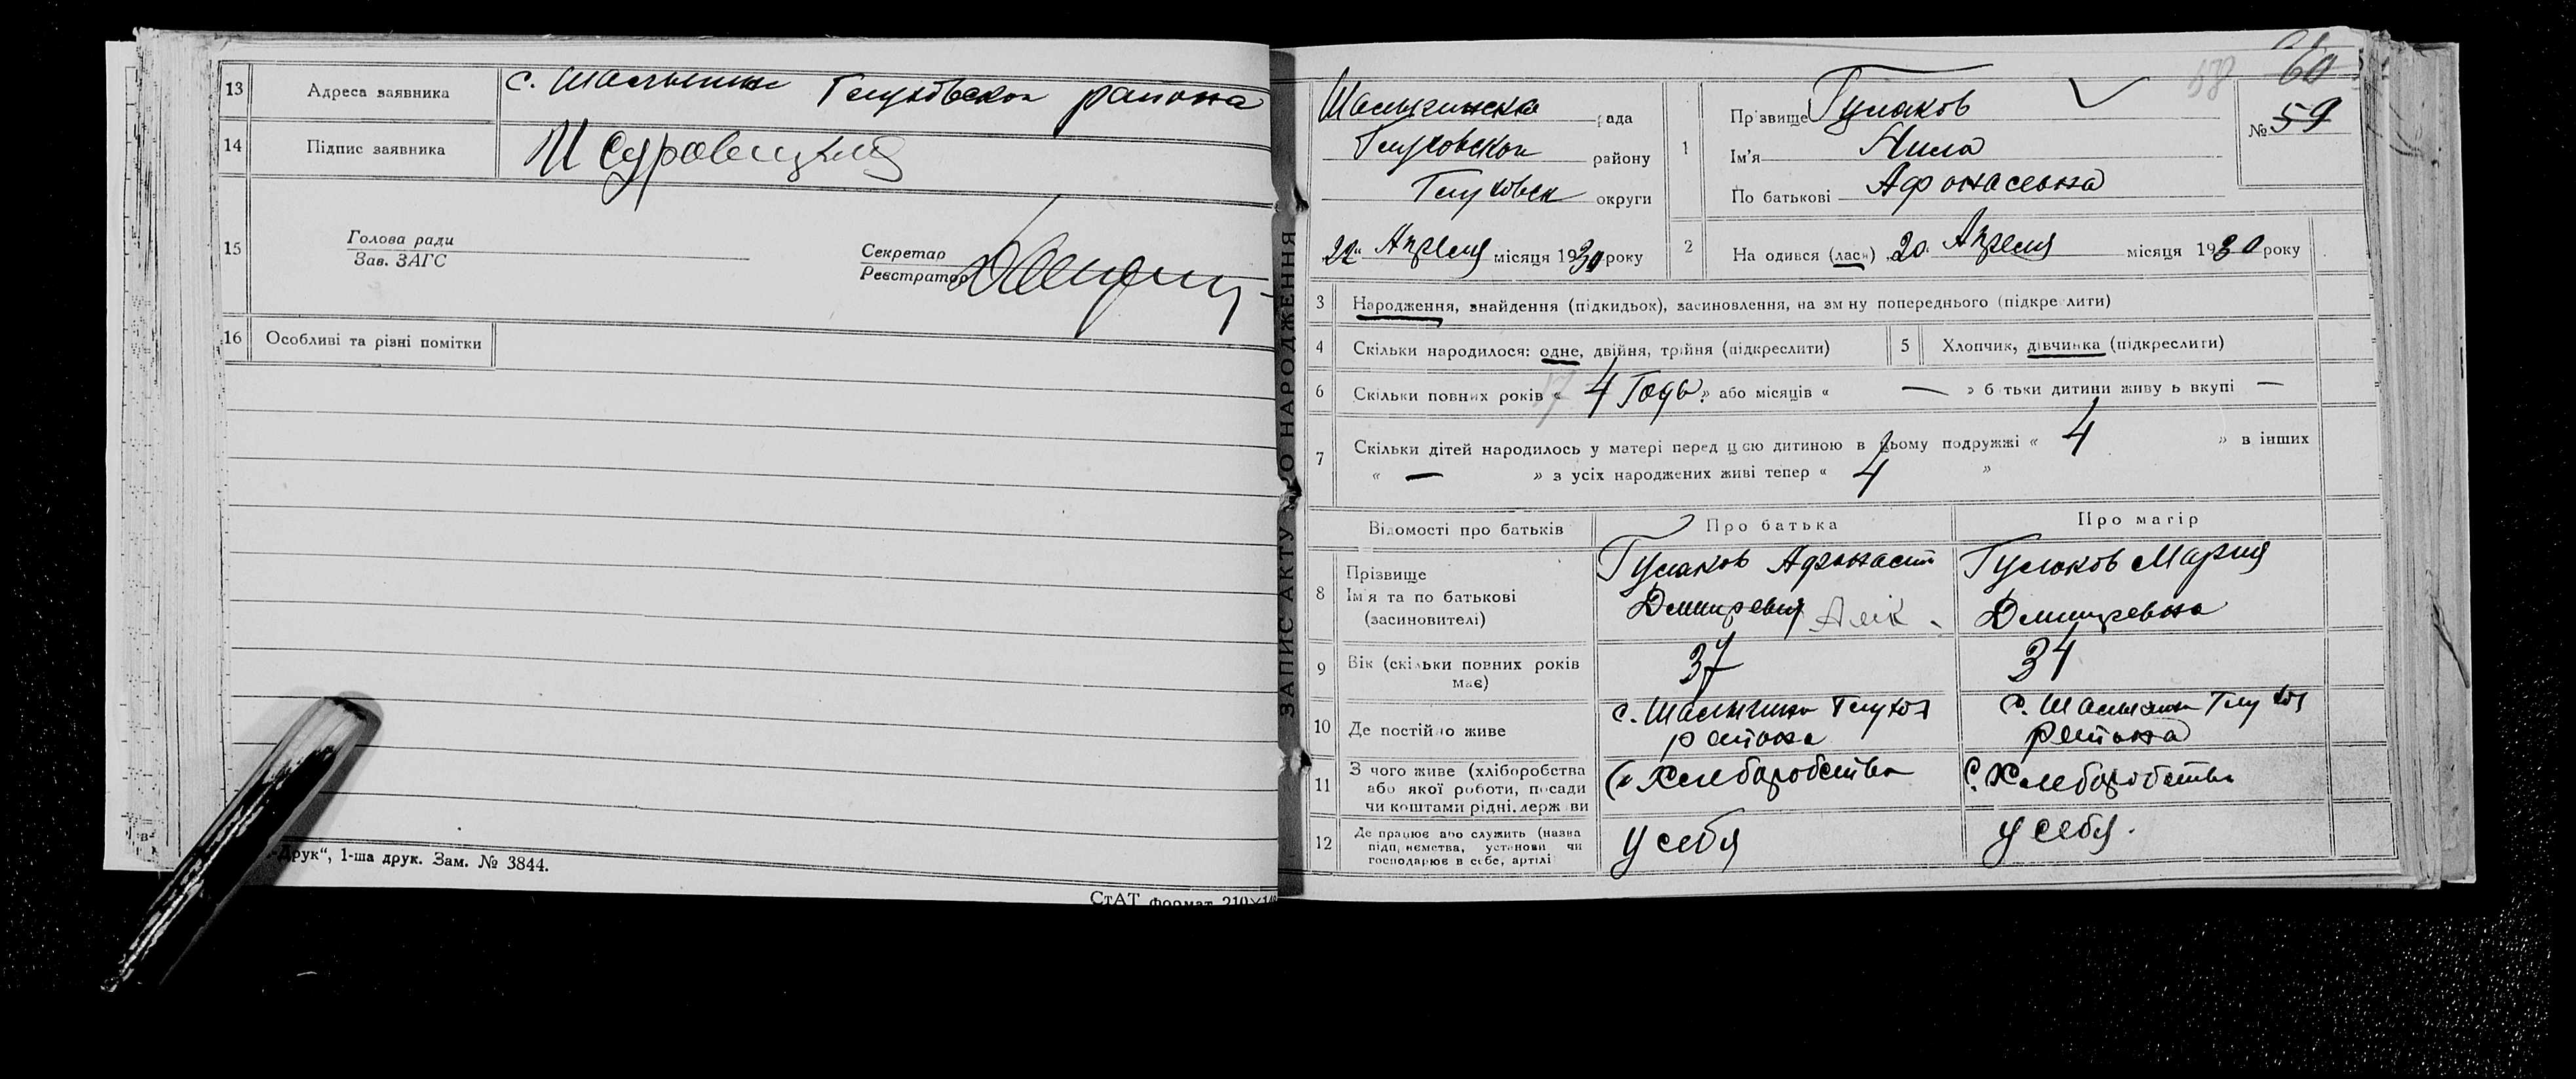 13 Адреса заявника с. Шалыгино Глуховского района
14 Підпис заявника И Суровицкия
15 Голова ради
Зав. ЗАГС
Секретар
Реєстратор
16 Особливі та різні помітки
Друк“, 1-ша друк. Зам. № 3844.
СтАТ формат 210×14
ЗАПИС АКТУ ПРО НАРОДЖЕННЯ
58 60
Шалыгинска рада
Глуховскои району
Глуховск округи
22 Апреля місяця 1930 року
1 Прізвище Гулаков
Ім'я Нила
По батькові Афонасевна
№ 59
2 Народився (лась) 20 Апреля місяця 1930 року
3 Народження, знайдення (підкидьок), засиновлення, на зміну попереднього (підкреслити)
4 Скільки народилося: одне, двійня, трійня (підкреслити)
5 Хлопчик, дівчинка (підкреслити)
6 Скільки повних років « 17 4 Годы » або місяців « — » батьки дитини живуть вкупі —
7 Скільки дітей народилось у матері перед цією дитиною в цьому подружжі « 4 » в інших
« — » з усіх народжених живі тепер « 4 »
Відомості про батьків Про батька Про матір
8 Прізвище
Ім'я та по батькові
(засиновителі)
Гулаков Афонасии
Дмитревич
Гулаков Мария
Дмитревна
9 Вік (скільки повних років
має)
37
34
10 Де постійно живе
с. Шалыгино Глухов
района
с. Шалыгино Глухов
района
11 З чого живе (хліборобства
або якої роботи, посади
чи коштами рідні, держави
Хлеборобства
Хлеборобства
12 Де працює або служить (назва
підприємства, установи чи
господарює в себе, артілі
у себя
у себя.